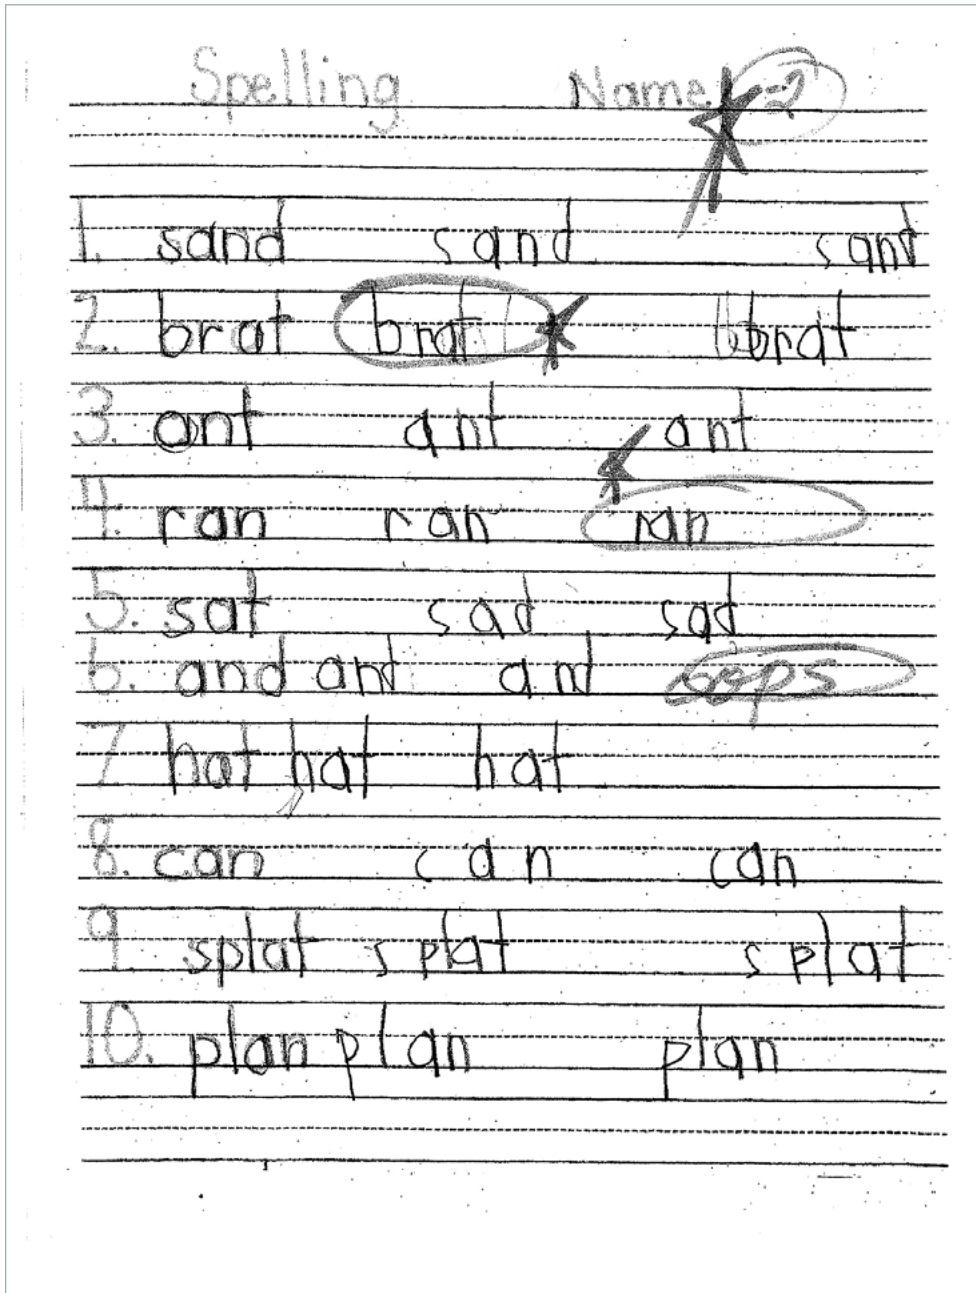 Spelling Name -2
1. sand sand sand
2. brat brat brat
3. ant ant ant
4. ran ran ran
5. sat sad sad
6. and and and oops
7. hat hat hat
8. can can can
9. splat splat splat
10. plan plan plan